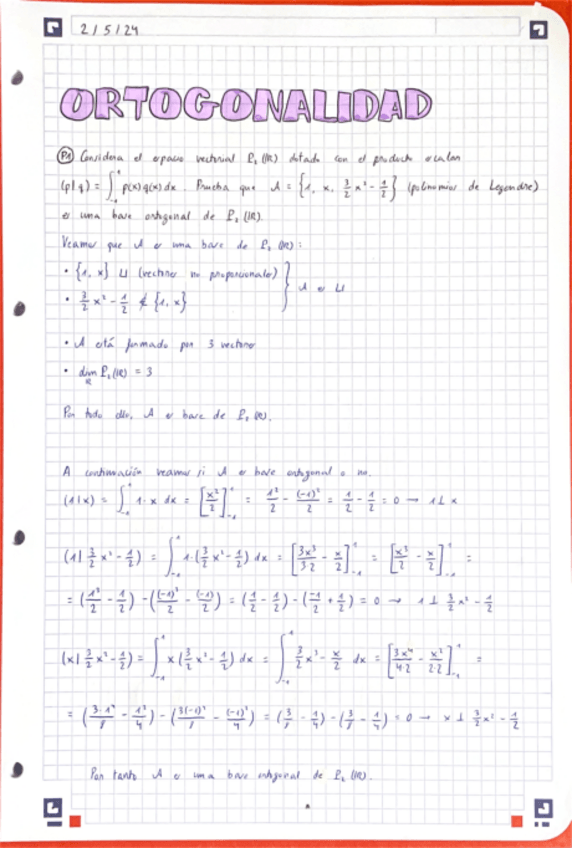 2/5/24
ORTOGONALIDAD
P1 Considera el espacio vectorial P₂(ℝ) dotado con el producto escalar
(p|q) = ∫₋₁¹ p(x)q(x)dx. Prueba que A = {1, x, 3/2 x² - 1/2} (polinomios de Legendre)
es una base ortogonal de P₂(ℝ).
Veamos que A es una base de P₂(ℝ):
• {1, x} LI (vectores no proporcionales) } A es LI
• 3/2 x² - 1/2 ∉ {1, x}
• A está formado por 3 vectores
• dim_ℝ P₂(ℝ) = 3
Por todo ello, A es base de P₂(ℝ).
A continuación veamos si A es base ortogonal o no.
(1|x) = ∫₋₁¹ 1·x dx = [x²/2]₋₁¹ = 1²/2 - (-1)²/2 = 1/2 - 1/2 = 0 → 1 ⊥ x
(1| 3/2 x² - 1/2) = ∫₋₁¹ 1·(3/2 x² - 1/2) dx = [3x³/3·2 - x/2]₋₁¹ = [x³/2 - x/2]₋₁¹ =
= (1³/2 - 1/2) - ((-1)³/2 - (-1)/2) = (1/2 - 1/2) - (-1/2 + 1/2) = 0 → 1 ⊥ 3/2 x² - 1/2
(x| 3/2 x² - 1/2) = ∫₋₁¹ x(3/2 x² - 1/2) dx = ∫₋₁¹ 3/2 x³ - x/2 dx = [3x⁴/4·2 - x²/2·2]₋₁¹ =
= (3·1⁴/8 - 1²/4) - (3(-1)⁴/8 - (-1)²/4) = (3/8 - 1/4) - (3/8 - 1/4) = 0 → x ⊥ 3/2 x² - 1/2
Por tanto A es una base ortogonal de P₂(ℝ).